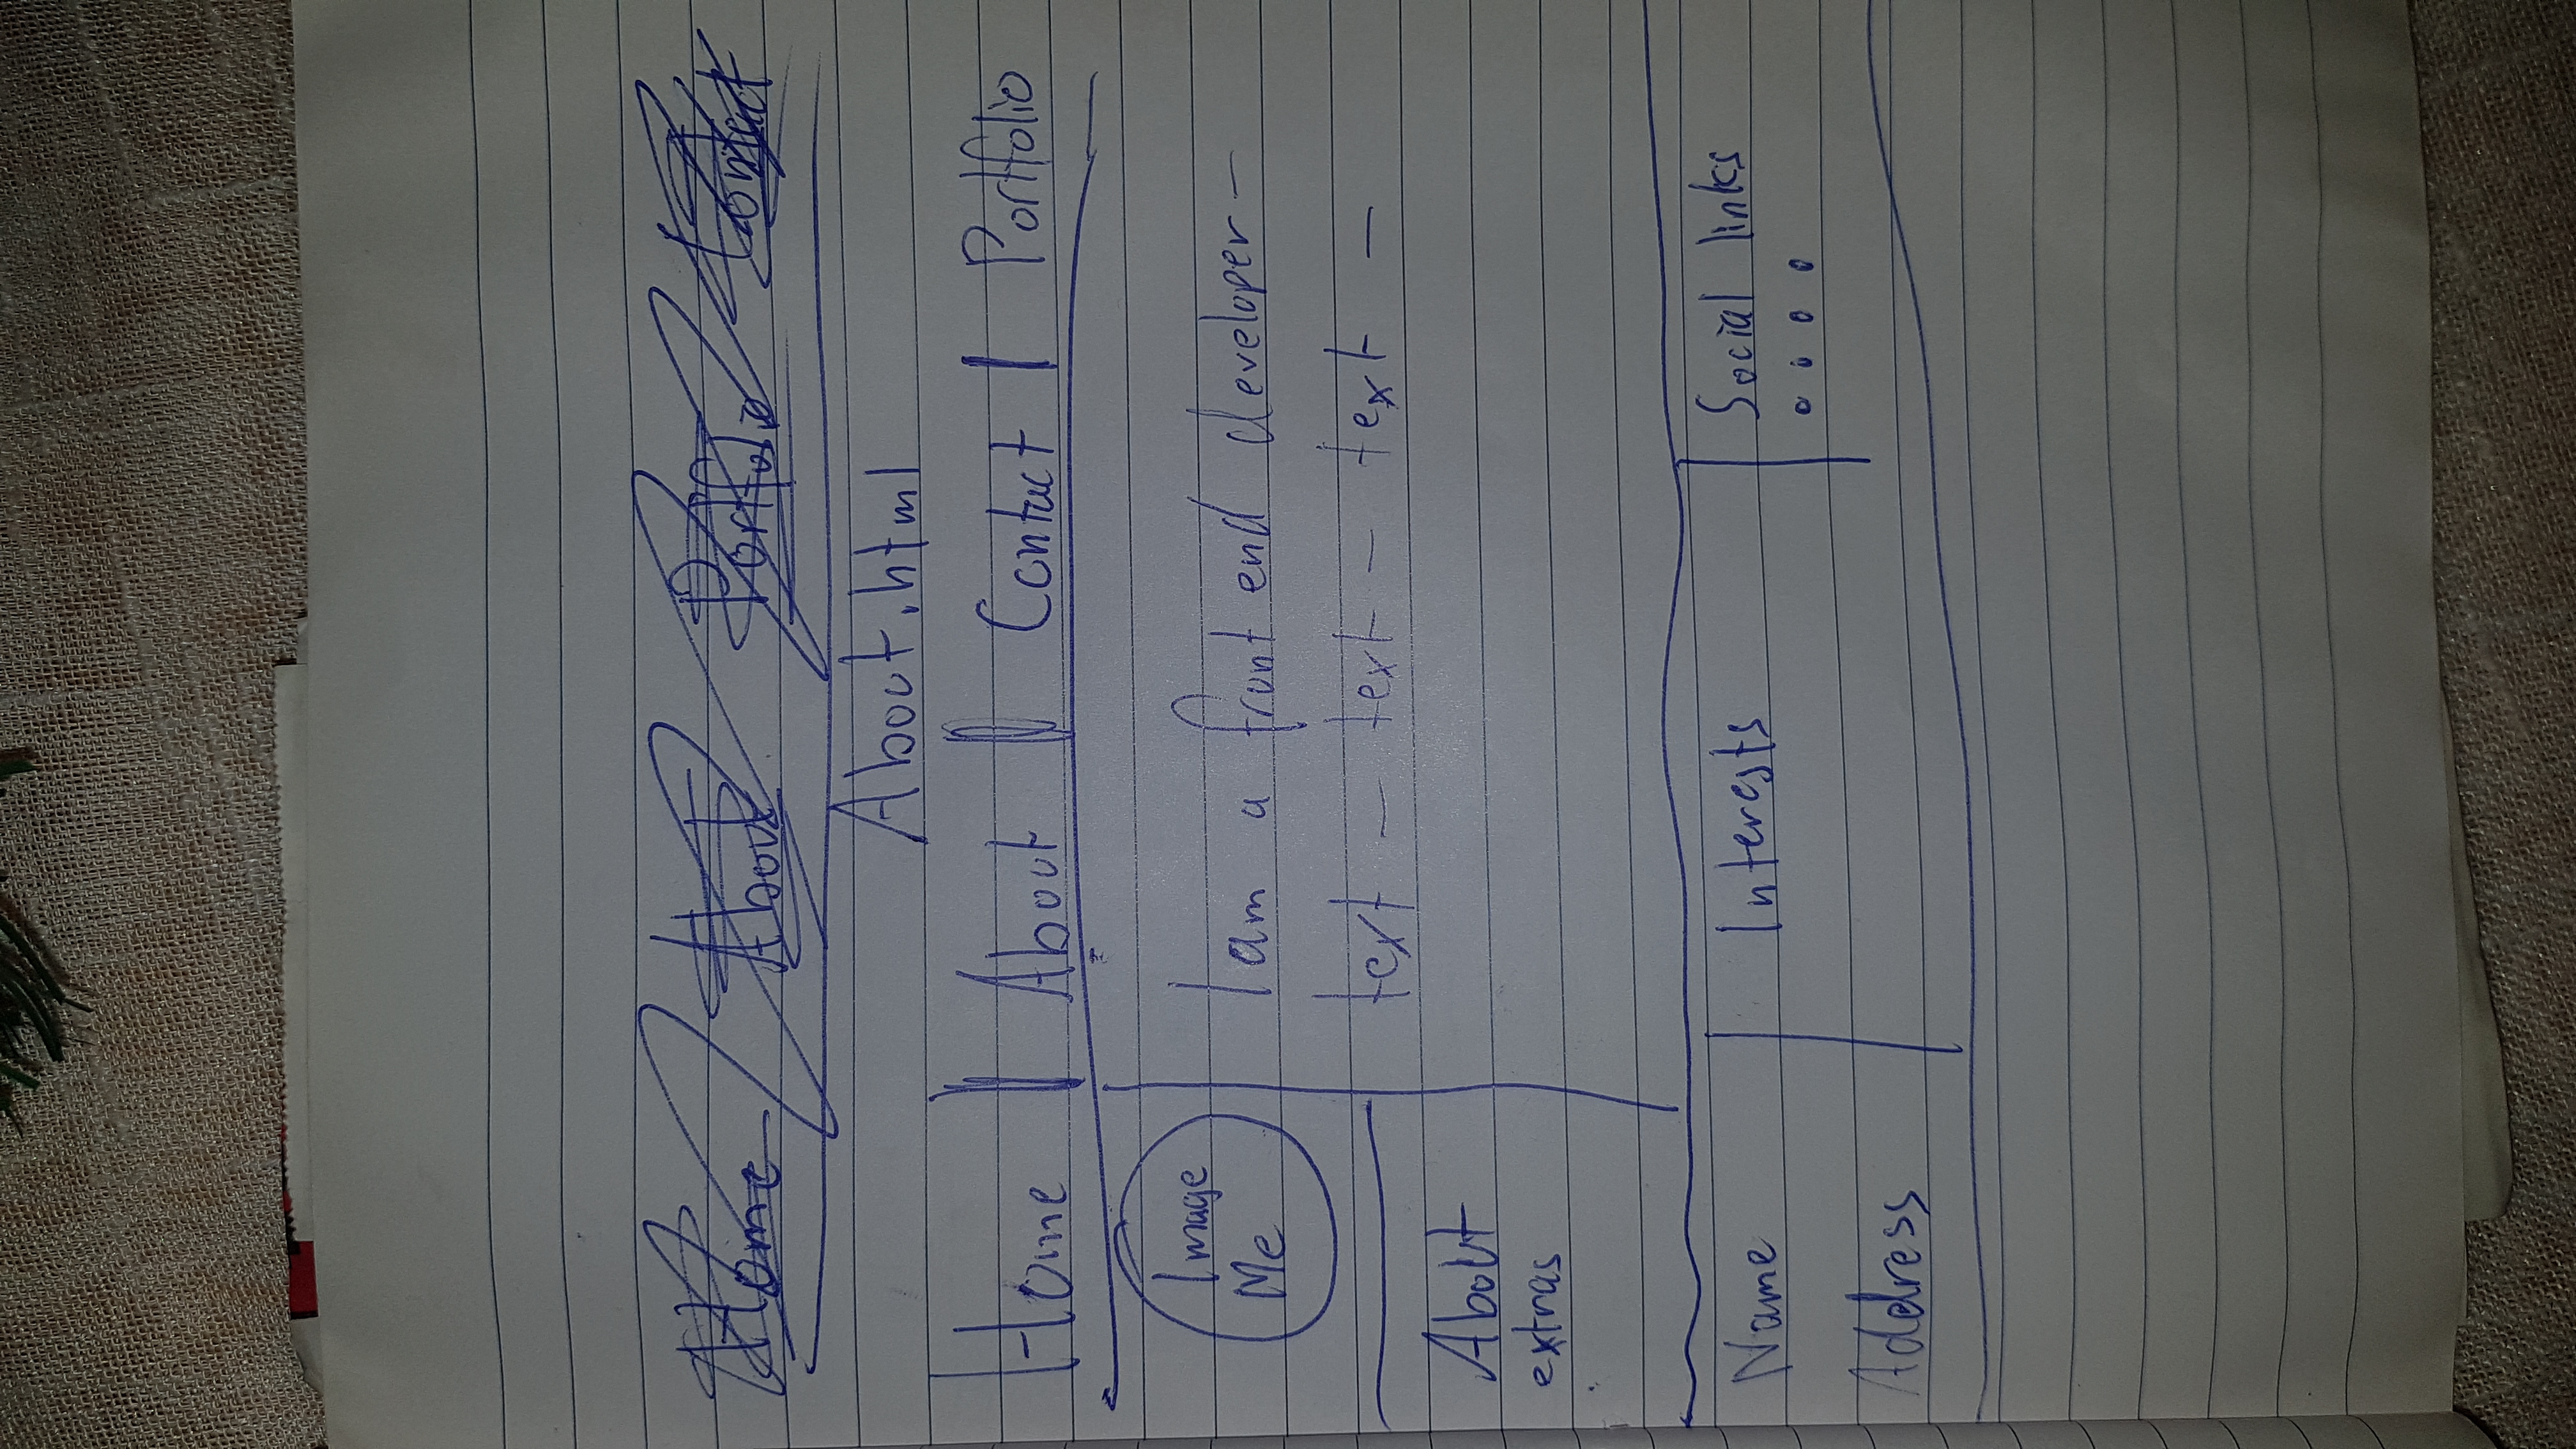 Home About Portfolio Contact
About.html
Home | About | Contact | Portfolio
Image
Me
I am a front end developer -
text - text - text -
About
extras
Name
Interests
Social links
Address